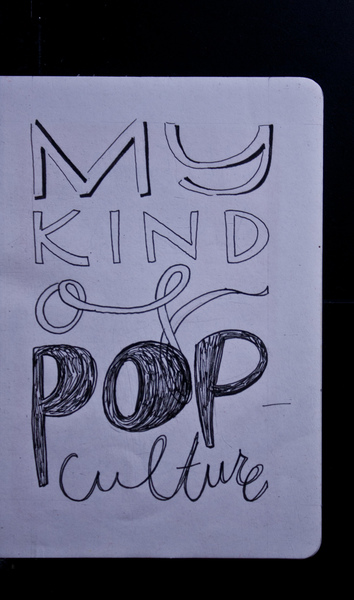 MY
KIND
of
POP
culture